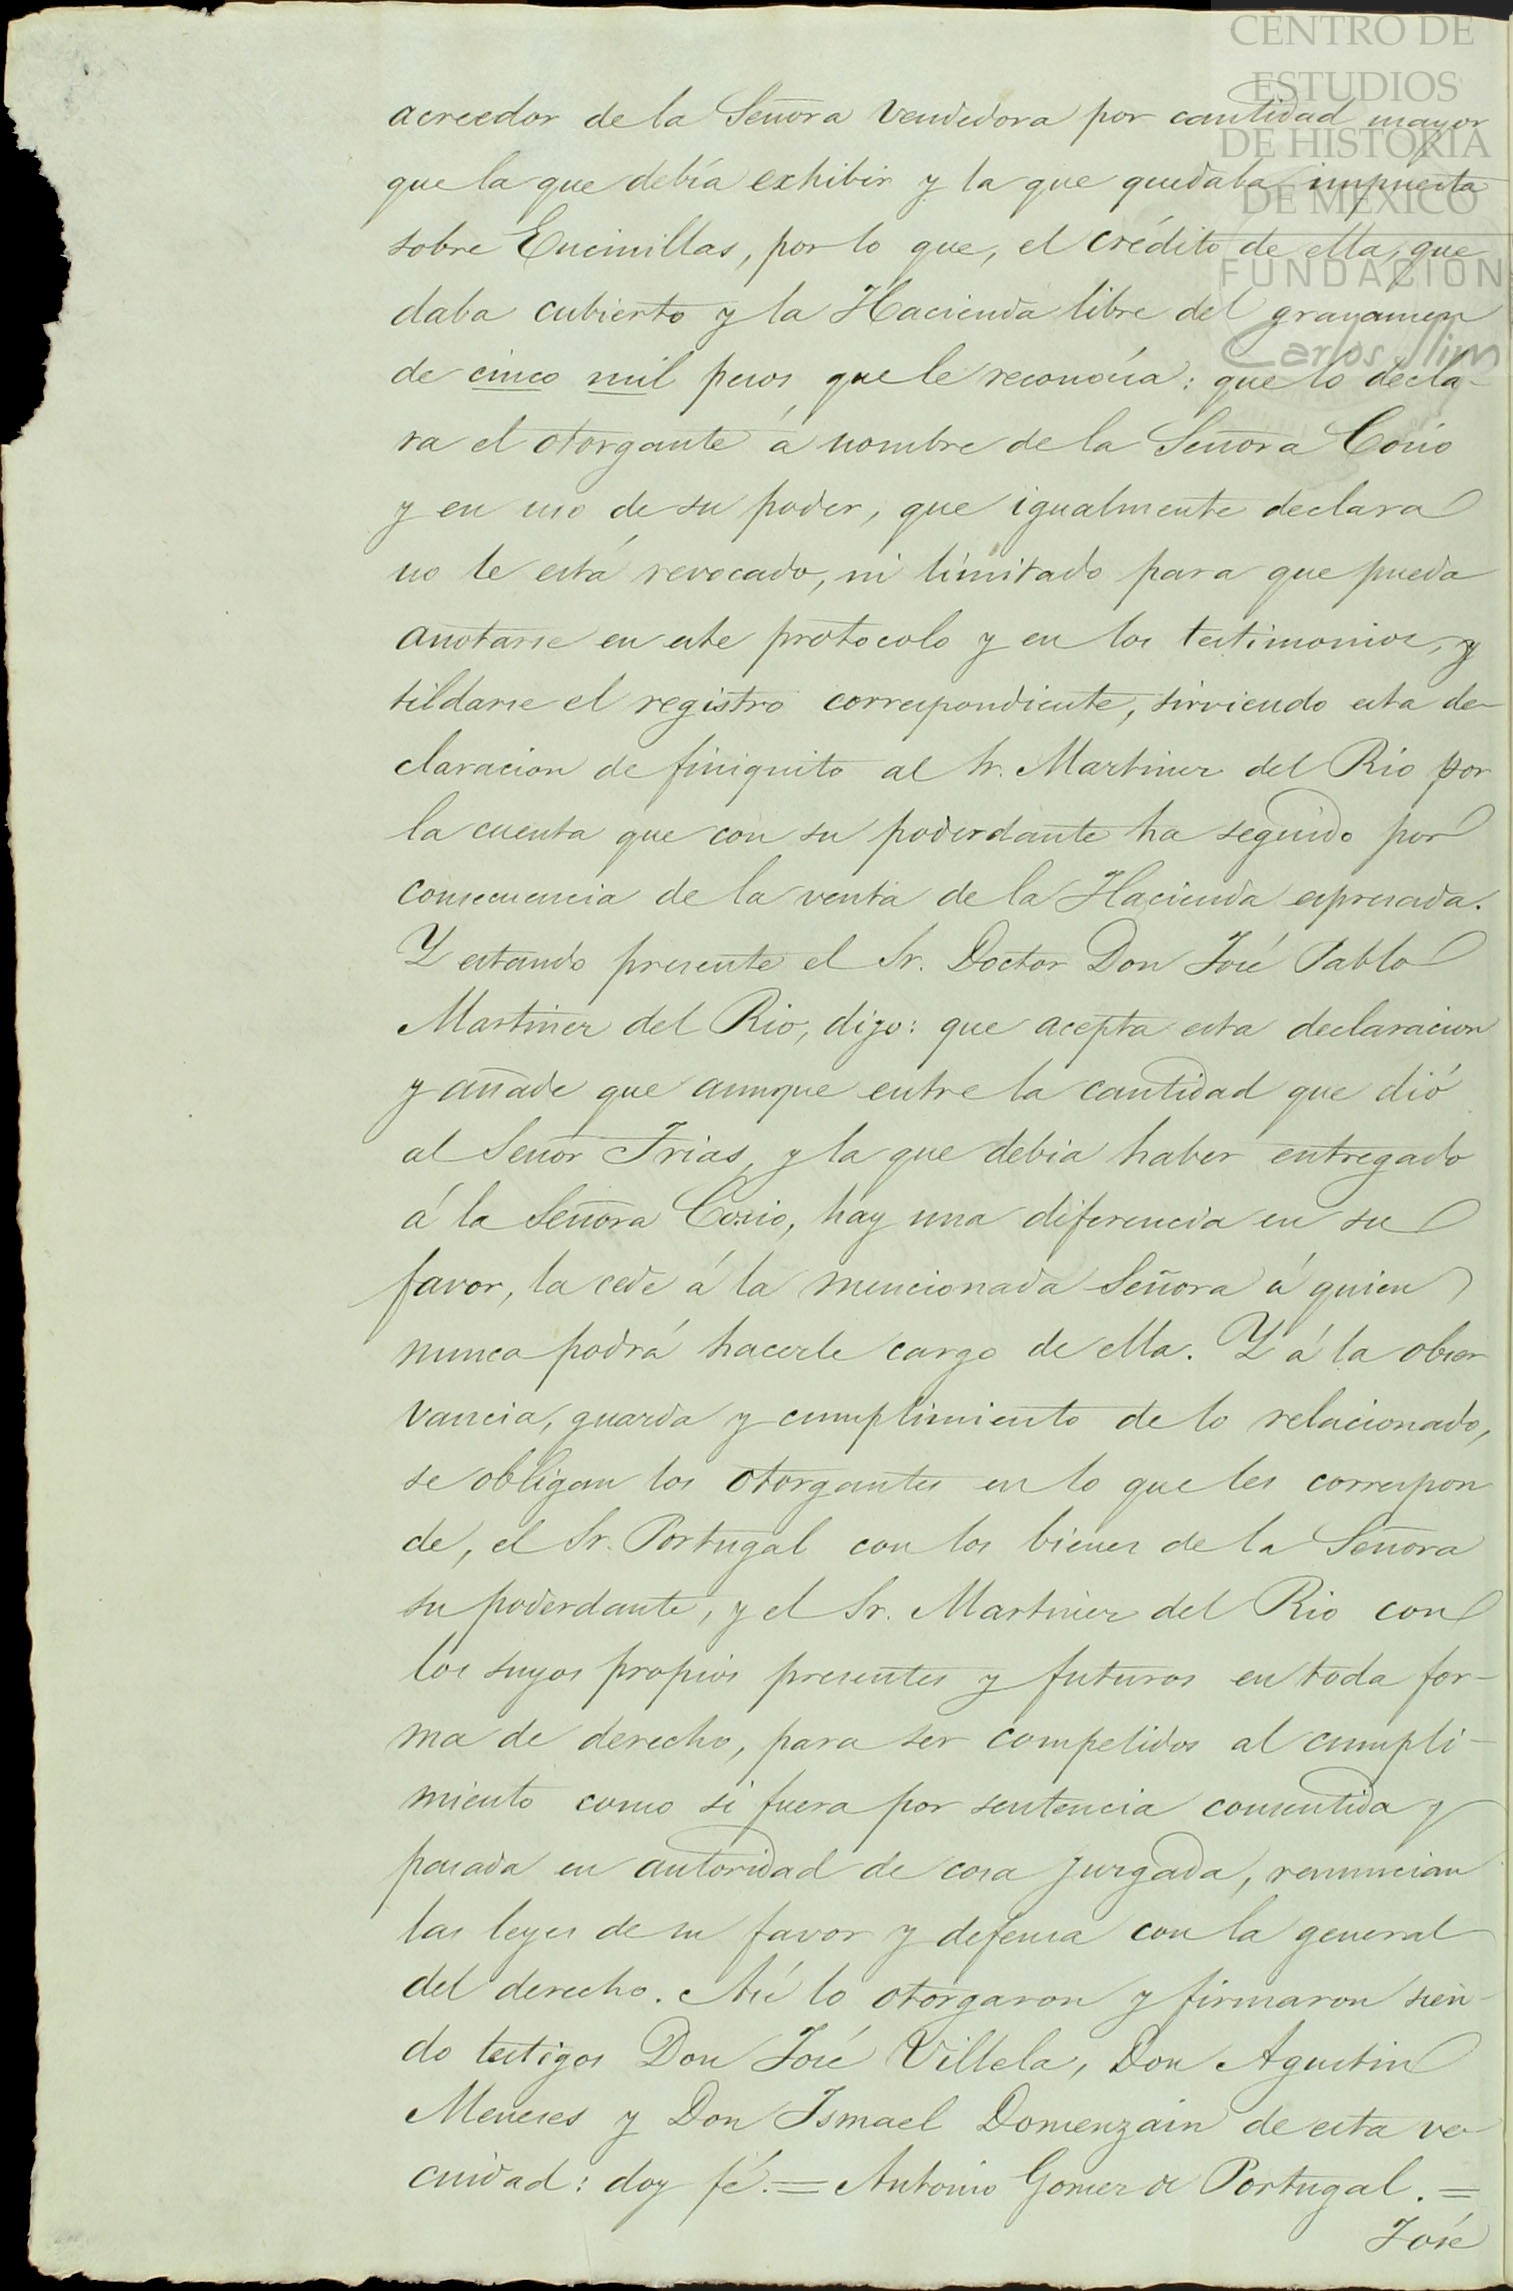 CENTRO DE
ESTUDIOS
DE HISTORIA
DE MEXICO
FUNDACION
Carlos Slim
acreedor de la Señora Vendedora por cantidad mayor
que la que debía exhibir y la que quedaba impuesta
sobre Encinillas, por lo que, el crédito de ella, que
daba cubierto y la Hacienda libre del gravamen
de cinco mil pesos que le reconocía: que lo decla-
ra el otorgante á nombre de la Señora Cosio
y en uso de su poder, que igualmente declara
no le está revocado, ni limitado para que pueda
anotarse en este protocolo y en los testimonios, y
tildarse el registro correspondiente, sirviendo esta de-
claracion de finiquito al Sr. Martinez del Rio por
la cuenta que con su poderdante ha seguido por
consecuencia de la venta de la Hacienda espresada.
Y estando presente el Sr. Doctor Don José Pablo
Martinez del Rio, dijo: que acepta esta declaracion
y añade que aunque entre la cantidad que dió
al Señor Frias, y la que debia haber entregado
á la Señora Cosio, hay una diferencia en su
favor, la cede á la mencionada Señora á quien
nunca podrá hacerle cargo de ella. Y á la obser
vancia, guarda y cumplimiento de lo relacionado,
se obligan los otorgantes en lo que les correspon
de, el Sr. Portugal con los bienes de la Señora
su poderdante, y el Sr. Martinez del Rio con
los suyos propios presentes y futuros en toda for-
ma de derecho, para ser compelidos al cumpli-
miento como si fuera por sentencia consentida y
pasada en autoridad de cosa juzgada, renuncian
las leyes de su favor y defensa con la general
del derecho. Así lo otorgaron y firmaron sien-
do testigos Don José Villela, Don Agustin
Meneses y Don Ismael Domenzain de esta ve-
cindad: doy fé. = Antonio Gomez de Portugal. =
José